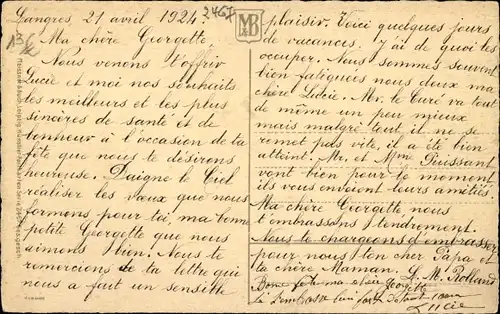 Langres, 21 avril 1924.
Ma chère Georgette,
Nous venons t'offrir
Lucie et moi nos souhaits
les meilleurs et les plus
sincères de santé et de
bonheur à l'occasion de ta
fête que nous te désirons
heureuse. Daigne le Ciel
réaliser les vœux que nous
formons pour toi, ma bonne
petite Georgette que nous
aimons bien. Nous te
remercions de ta lettre qui
nous a fait un sensible
MB
plaisir. Voici quelques jours
de vacances. J'ai de quoi les
occuper. Nous sommes souvent
bien fatiguées nous deux ma
chère Lucie. Mr. le Curé va tout
de même un peu mieux
mais malgré tout il ne se
remet pas vite, il a été bien
atteint. Mr. et Mme Puissant
vont bien pour le moment
ils vous envoient leurs amitiés.
Ma chère Georgette, nous
t'embrassons tendrement.
Nous te chargeons d'embrasser
pour nous ton cher Papa et
ta chère Maman. L. M. Rolland
Bonne fête ma chère Georgette
Je t'embrasse bien fort de tout cœur
Lucie